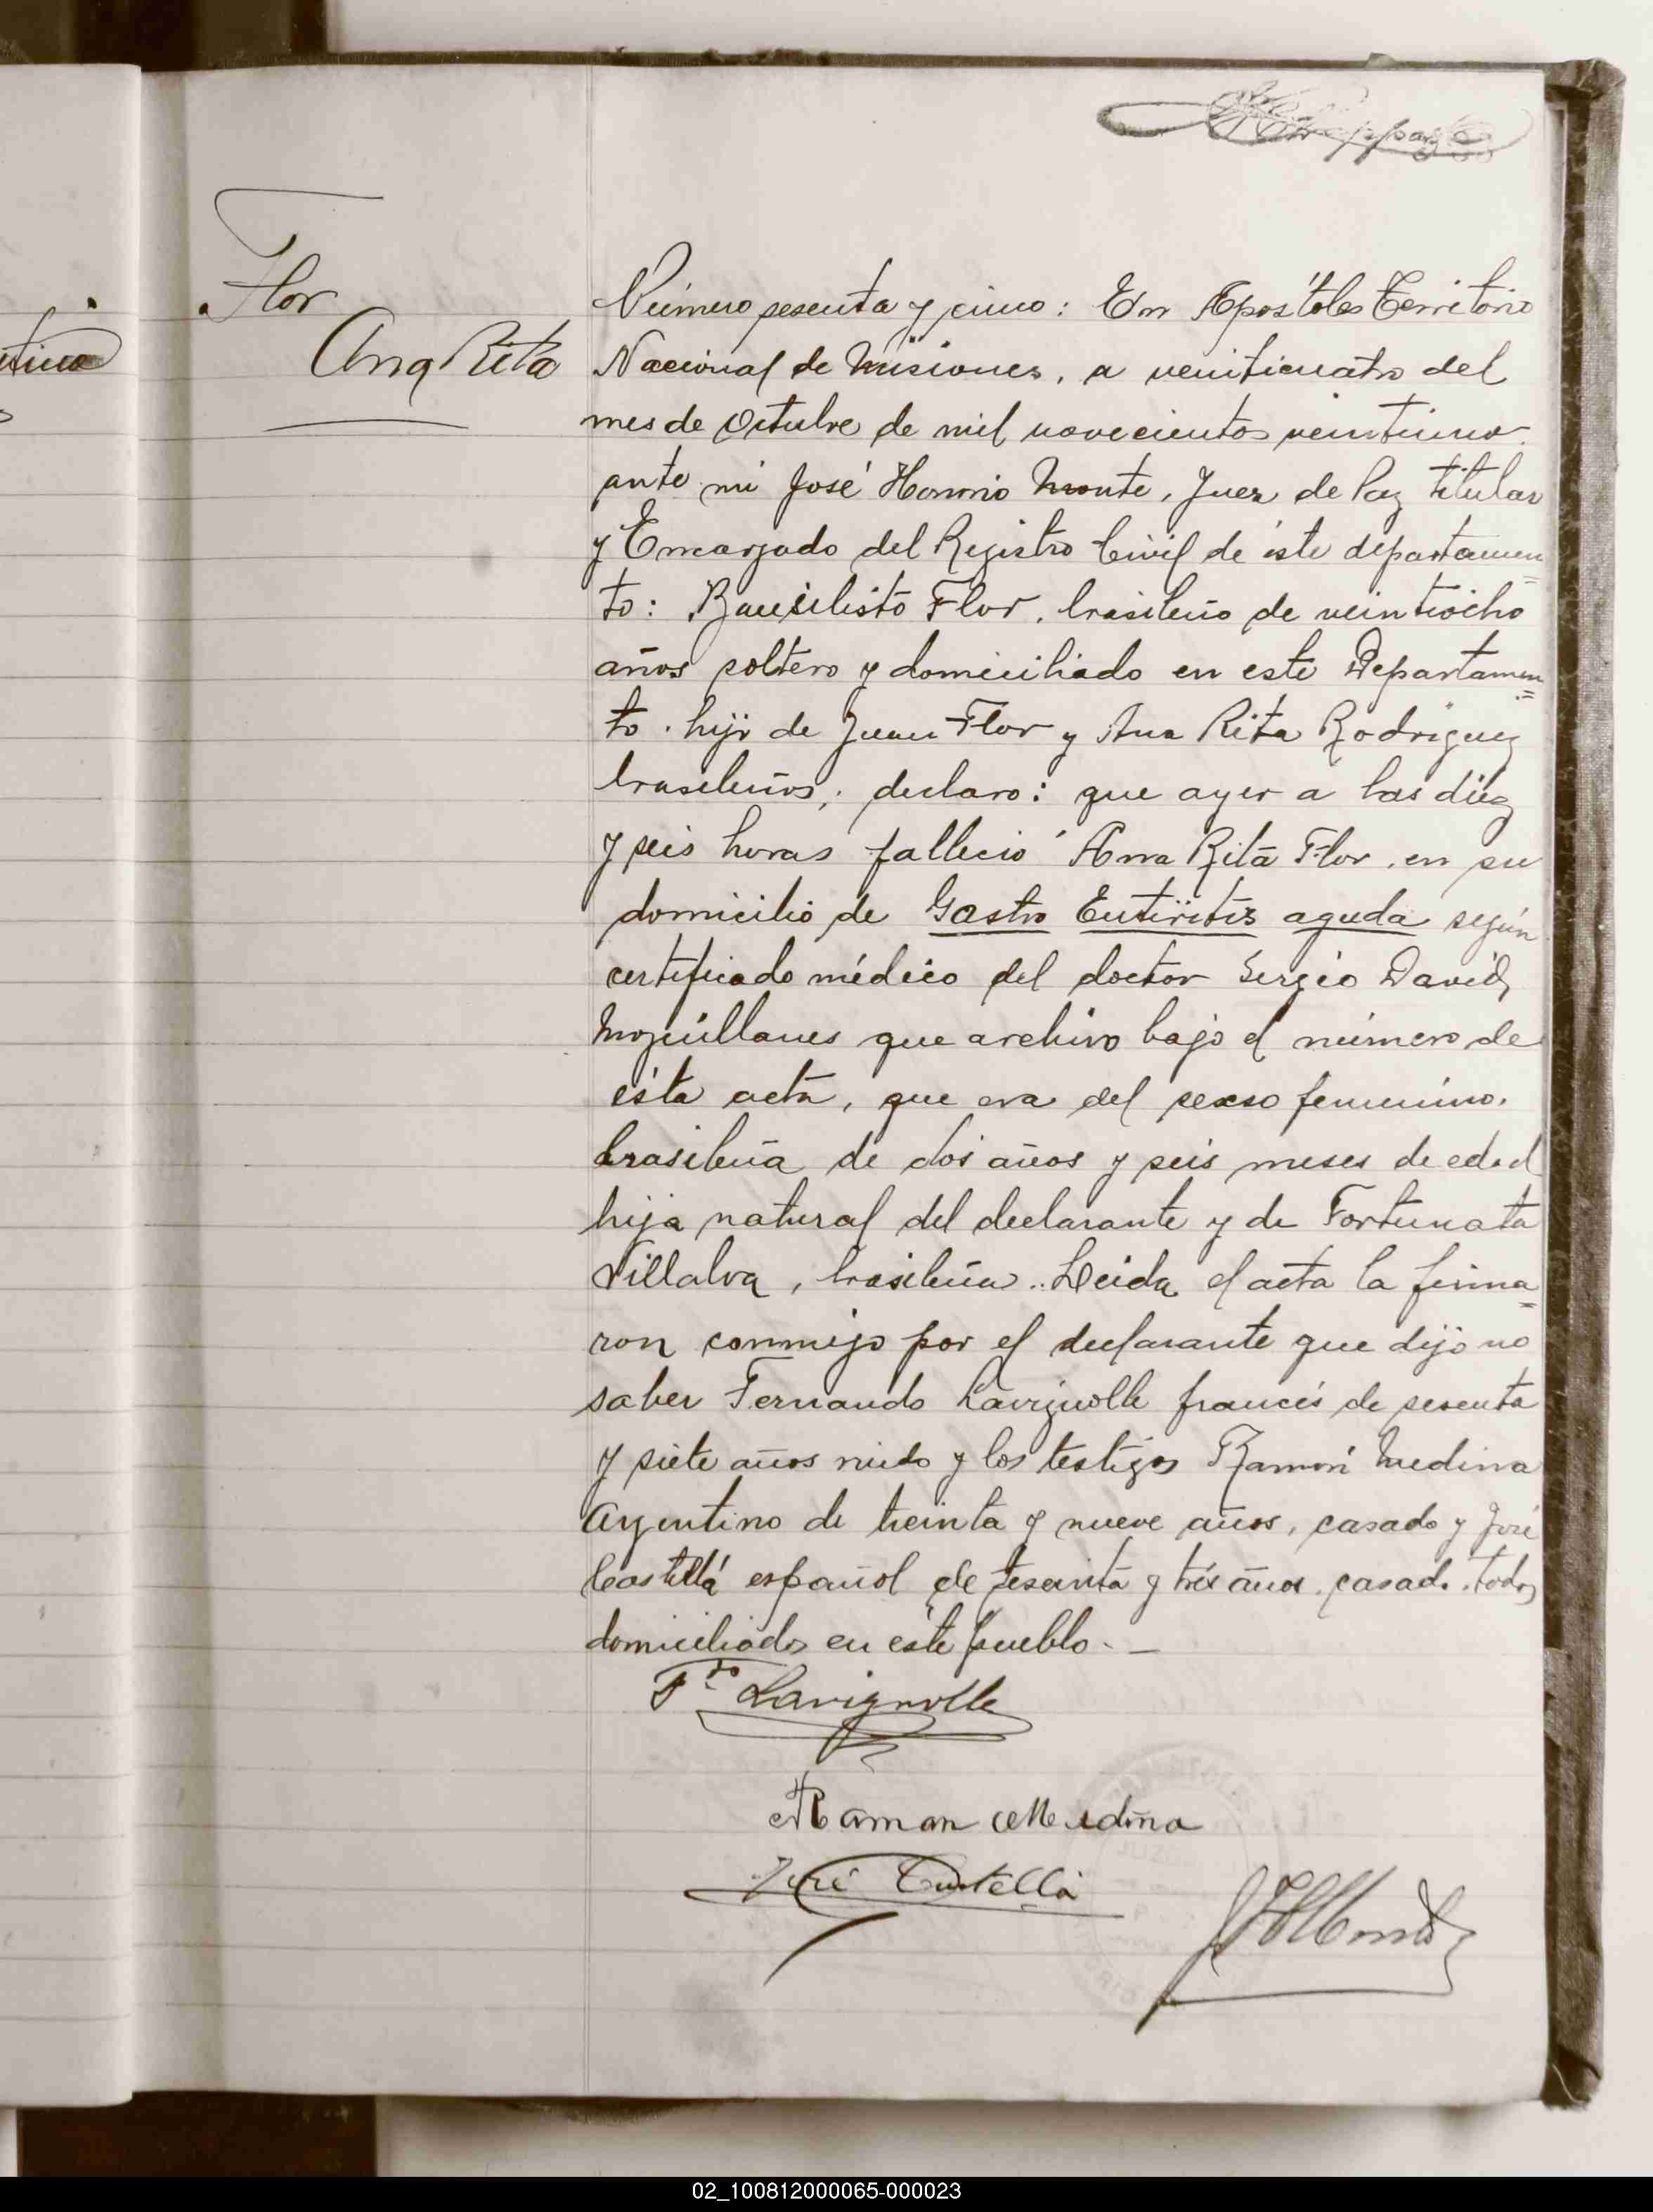 Flor
Ana Rita
Número sesenta y cinco: En Apóstoles Territorio
Nacional de Misiones, a veinticuatro del
mes de Octubre de mil novecientos veintiuno
ante mi José Honorio Monte, Juez de Paz titular
y Encargado del Registro Civil de éste departamen=
to: Bausilisto Flor, brasileño de veintiocho
años soltero y domiciliado en este Departamen=
to. hijo de Juan Flor y Ana Rita Rodriguez
brasileños; declaro: que ayer a las diez
y seis horas falleció Ana Rita Flor, en su
domicilio de Gastro Enteritis aguda según
certificado médico del doctor Sergio David
que archivo bajo el número de
ésta acta, que era del sexso femenino.
brasileña de dos años y seis meses de edad
hija natural del declarante y de Fortunata
Villalva, brasileña. Leida el acta la firma=
ron conmigo por el declarante que dijo no
saber Fernando Lavignolle francés de sesenta
y siete años viudo y los testigos Ramón Medina
Argentino de treinta y nueve años, casado y José
Castellá español de sesenta y tres años casado. todos
domiciliados en este pueblo. —
Fdo Lavignolle
Ramon Medina
José Castellá
JHMonte
02_100812000065-000023